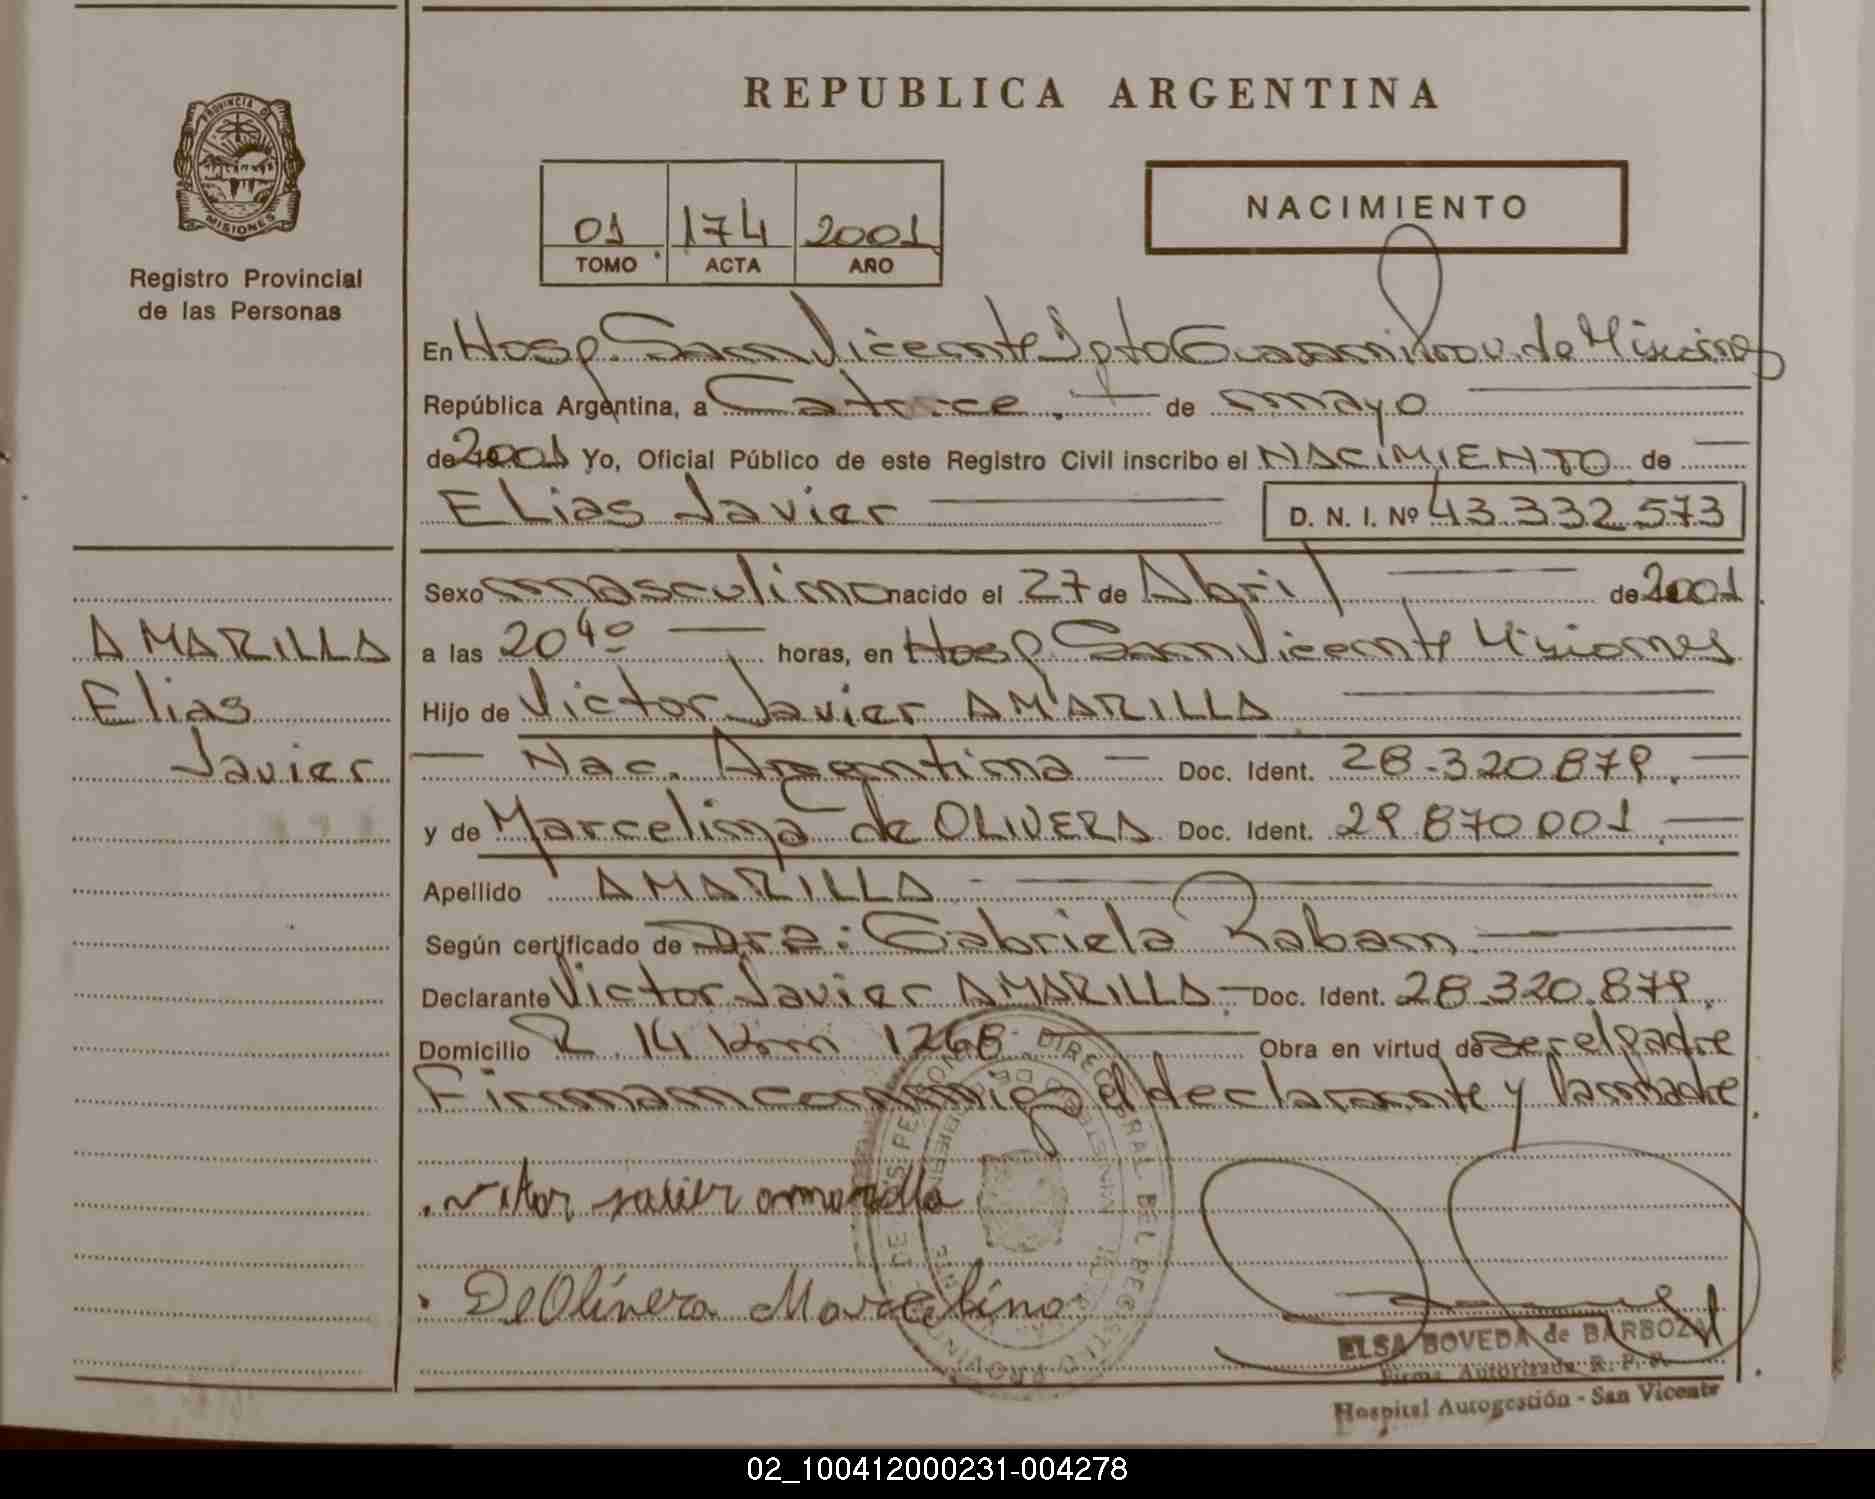 REPUBLICA ARGENTINA
PROVINCIA DE
MISIONES
Registro Provincial
de las Personas
01 174 2001
TOMO ACTA AÑO
NACIMIENTO
En Hosp. San Vicente Dpto Guarani Prov. de Misiones
República Argentina, a Catorce. de mayo
de 2001 Yo, Oficial Público de este Registro Civil inscribo el NACIMIENTO de
Elias Javier D. N. I. Nº 43.332.573
Sexo masculino nacido el 27 de Abril de 2001
a las 20 40 horas, en Hosp San Vicente Misiones
Hijo de Victor Javier AMARILLA
Nac. Argentina Doc. Ident. 28.320.879
y de Marcelina de OLIVERA Doc. Ident. 29.870.001
Apellido AMARILLA
Según certificado de Dra: Gabriela Raban
Declarante Victor Javier AMARILLA Doc. Ident. 28.320.879
Domicilio R. 14 Km 1268 Obra en virtud de ser el padre
Firman conmigo el declarante y la madre
AMARILLA
Elias
Javier
Vitor javier amarilla
De Olivera Marcelina
ELSA BOVEDA de BARBOZA
Firma Autorizada R. P. P.
Hospital Autogestión - San Vicente
02_100412000231-004278